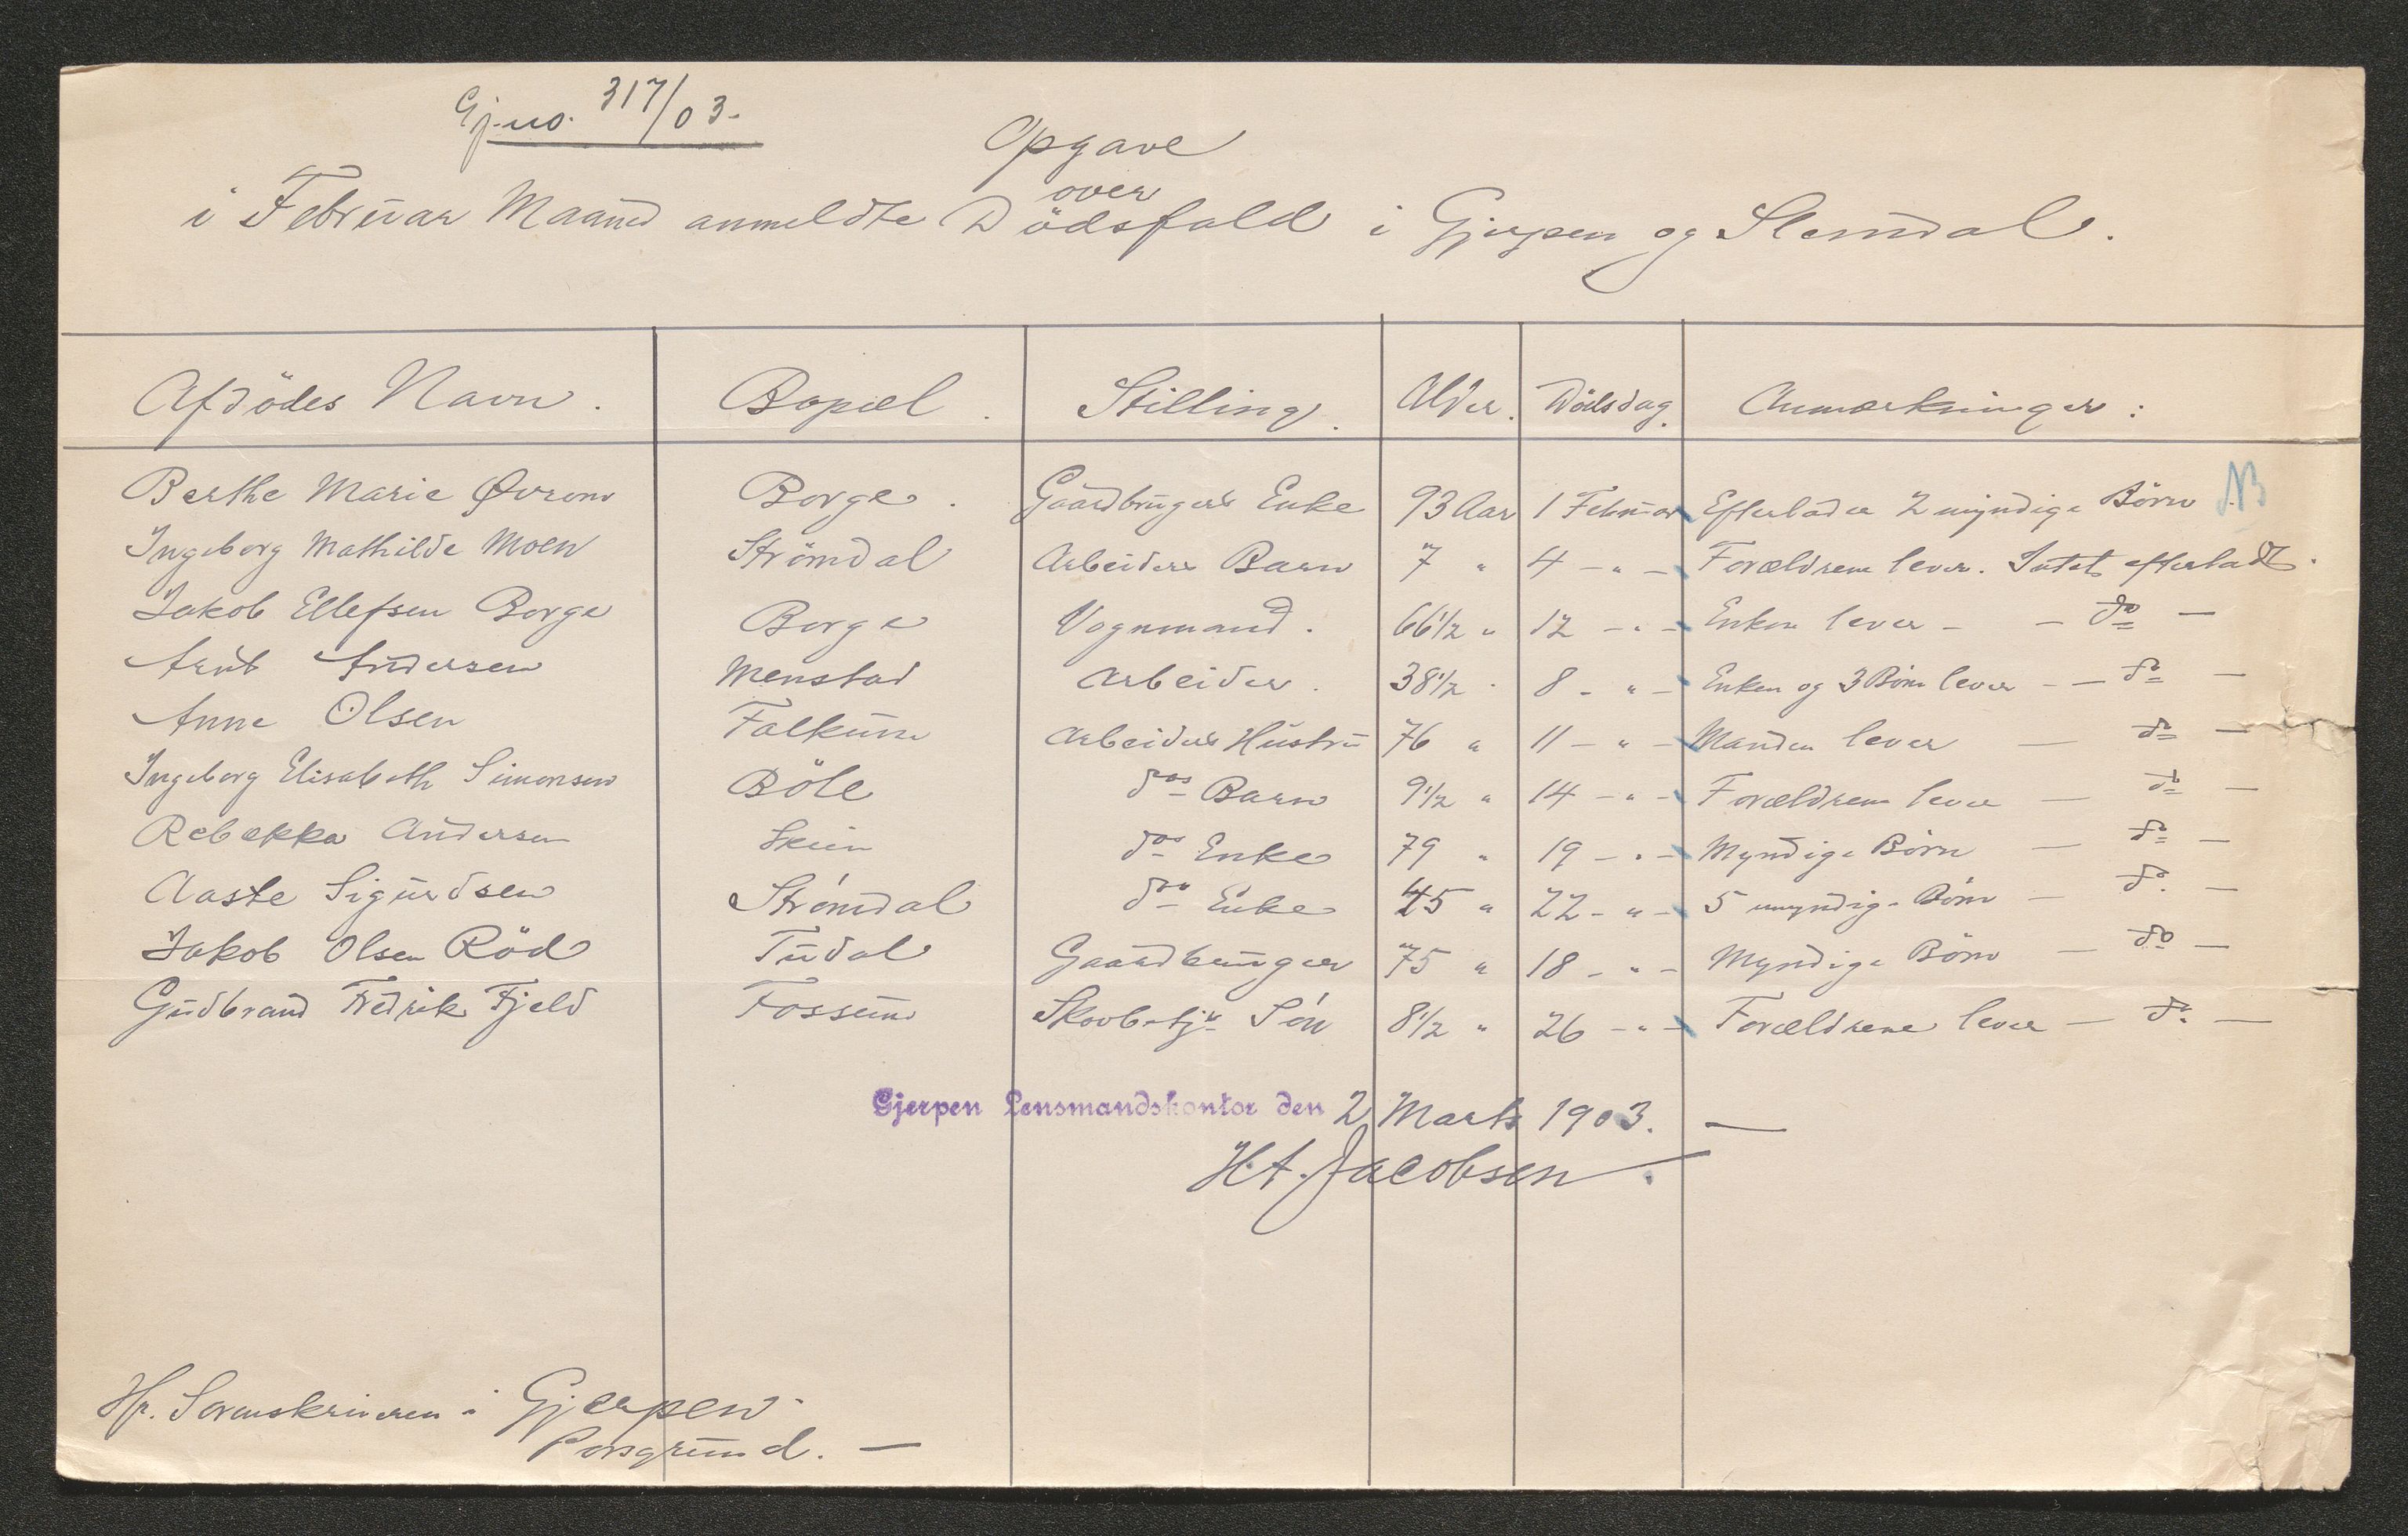 Gj.no. 317/03.
Opgave
over
i Februar Maaned anmeldte Dödsfald i Gjerpen og Slemdal.
Afdödes Navn. Bopæl. Stilling. Alder. Dödsdag. Anmærkninger:
Berthe Marie Øvrom Borge. Gaardbrugers Enke 93 Aar 1 Februar Efterlader 2 myndige Börn. NB
Ingeborg Mathilde Moen Strömdal Arbeiders Barn 7 " 4 - " - Forældrene lever. Intet efterladt.
Jakob Ellefsen Borge Borge Vognmand. 66 1/2 " 12 - " - Enken lever - - do -
Arnt Andersen Menstad Arbeider. 38 1/2 " 8 - " - Enken og 3 Börn lever - - do -
Anne Olsen Falkum Arbeiders Hustru 76 " 11 - " - Manden lever - do -
Ingeborg Elisabeth Simonsen Böle dos Barn 9 1/2 " 14 - " - Forældrene lever - do -
Rebekka Andersen Skien dos Enke 79 " 19 - " - Myndige Börn - do -
Aaste Sigurdsen Strömdal dos Enke 45 " 22 - " - 5 umyndige Börn - do. -
Jakob Olsen Röd Tudal Gaardbruger 75 " 18 - " - Myndige Börn - do -
Gudbrand Fredrik Fjeld Fossum Skovbetj. Sön 8 1/2 " 26 - " - Forældrene lever - do. -
Gjerpen Lensmandskontor den 2 Marts 1903. -
H. A. Jacobsen.
Hr. Sorenskriveren i Gjerpen
Porsgrund. -